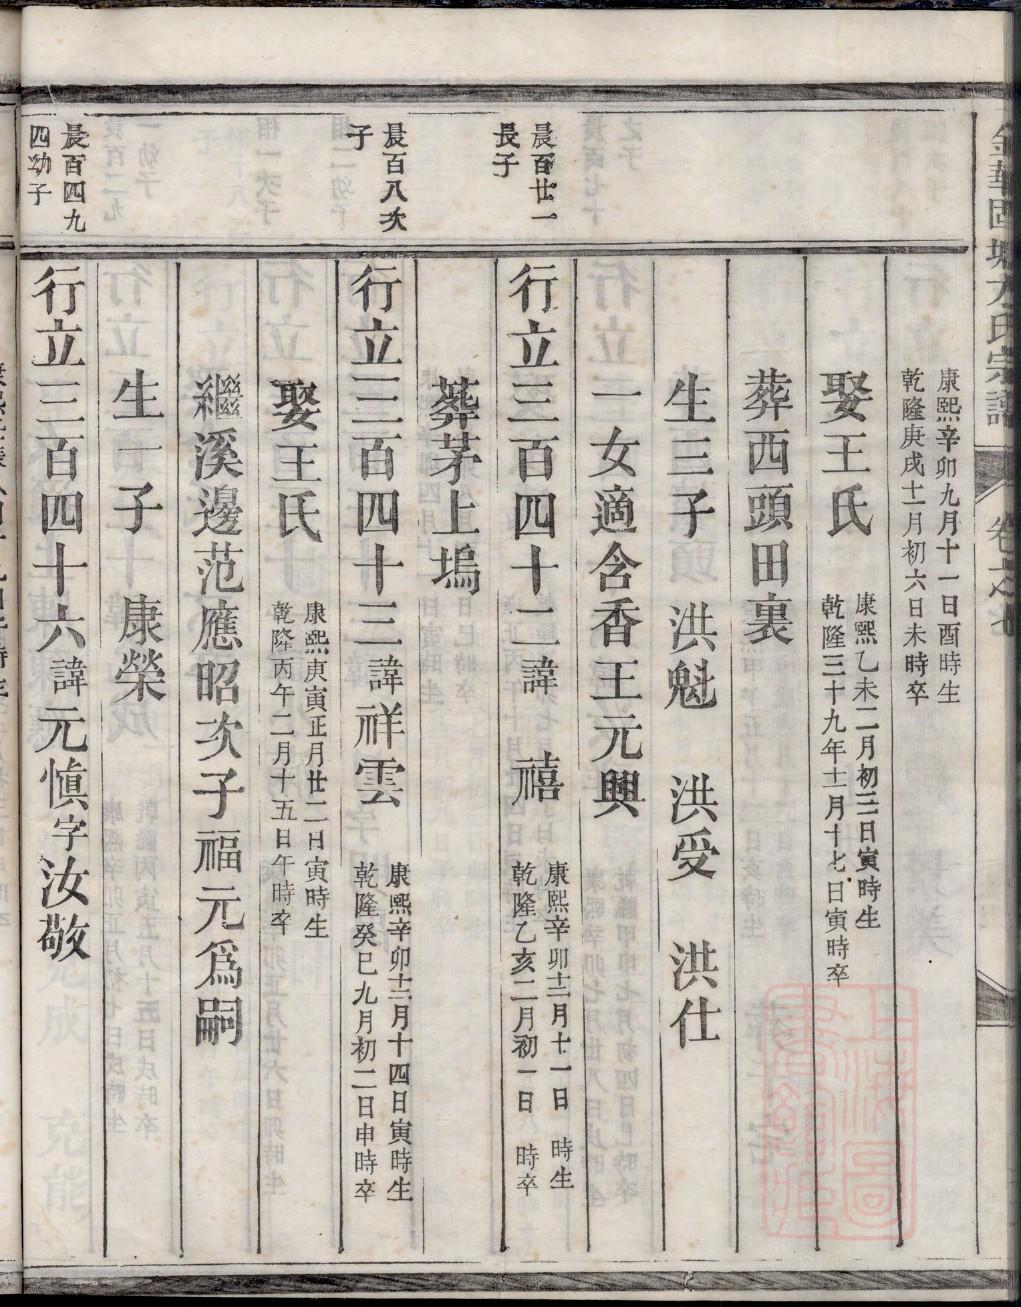 金華固塘方氏宗譜
康熙辛卯九月十一日酉時生
乾隆庚戌十一月初六日未時卒
娶王氏
康熙乙未二月初三日寅時生
乾隆三十九年十二月十七日寅時卒
葬西頭田裏
生三子 洪魁 洪受 洪仕
一女適含香王元興
晨百廿一
長子
行立三百四十二諱 禧
康熙辛卯十二月十一日 時生
乾隆乙亥二月初一日 時卒
葬茅上塢
晨百八次
子
行立三百四十三諱祥雲
康熙辛卯十二月十四日寅時生
乾隆癸巳九月初二日申時卒
娶王氏
康熙庚寅正月廿二日寅時生
乾隆丙午二月十五日午時卒
繼溪邊范應昭次子福元爲嗣
生一子 康榮
晨百四九
四幼子
行立三百四十六諱元愼字汝敬